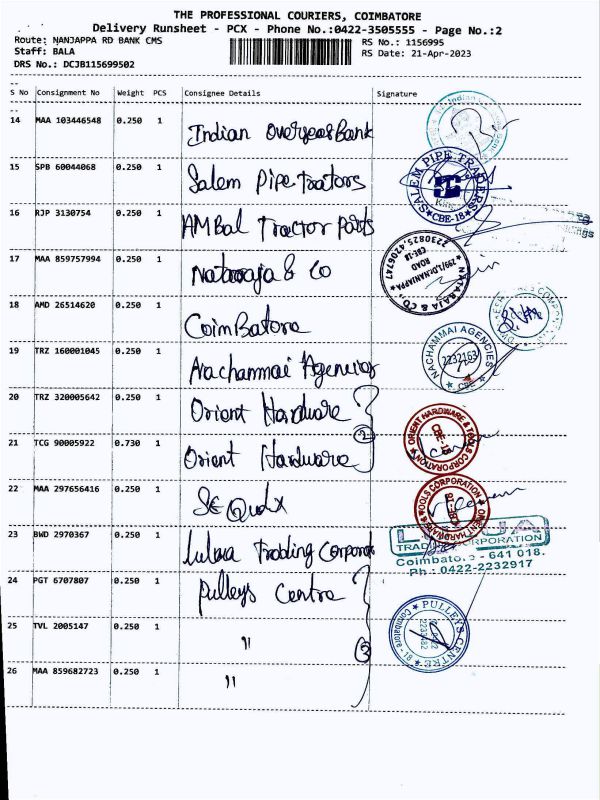 THE PROFESSIONAL COURIERS, COIMBATORE
Delivery Runsheet - PCX - Phone No.:0422-3505555 - Page No.:2
Route: NANJAPPA RD BANK CMS
RS No.: 1156995
Staff: BALA
RS Date: 21-Apr-2023
DRS No.: DCJB115699502
S No Consignment No Weight PCS Consignee Details Signature
14 MAA 103446548 0.250 1 Indian Overseas Bank
15 SPB 60044068 0.250 1 Salem Pipe Trators
SALEM PIPE TRADERS
CBE-18
16 RJP 3130754 0.250 1 AMBal Tractor Parts
17 MAA 859757994 0.250 1 Nataraaja & Co
NATARAJA & CO.,
299/1, Dr. NANJAPPA
ROAD
CBE-18
2230825, 4206747
18 AMD 26514620 0.250 1 CoimBatore
19 TRZ 160001045 0.250 1 Nachammai Agencies
NACHAMMAI AGENCIES
2232163
CBE
20 TRZ 320005642 0.250 1 Orient Hardware
ORIENT HARDWARE & TOOLS CORPORATION
CBE-18
2
21 TCG 90005922 0.730 1 Orient Hardware
22 MAA 297656416 0.250 1
ORIENT HARDWARE & TOOLS CORPORATION
CBE-18
23 BWD 2970367 0.250 1 Trading Corporat
TRADING CORPORATION
Coimbatore - 641 018.
Ph : 0422-2232917
24 PGT 6707807 0.250 1 Pulleys Centre
25 TVL 2005147 0.250 1 "
3
PULLEYS CENTRE
Coimbatore - 18
26 MAA 859682723 0.250 1 "